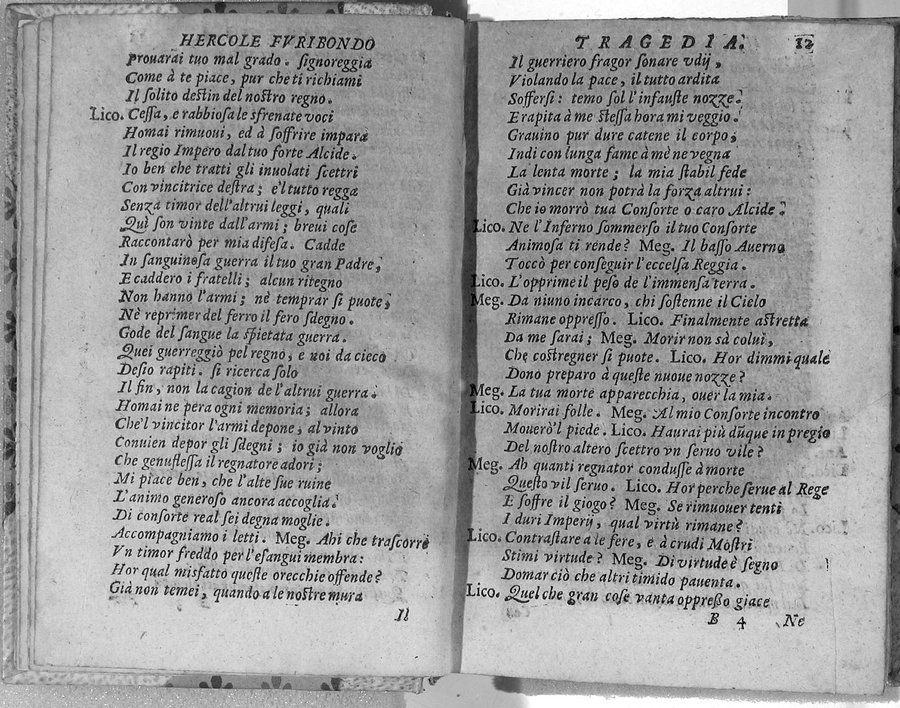 HERCOLE FVRIBONDO
prouarai tuo mal grado. signoreggia
Come à te piace, pur che ti richiami
Il solito destin del nostro regno.
Lico. Cessa, e rabbiosa le sfrenate voci
Homai rimuoui, ed à soffrire impara
Il regio Impero dal tuo forte Alcide.
Io ben che tratti gli inuolati scettri
Con vincitrice destra; e'l tutto regga
Senza timor dell'altrui leggi, quali
Quì son vinte dall'armi; breui cose
Raccontarò per mia difesa. Cadde
In sanguinosa guerra il tuo gran Padre,
E caddero i fratelli; alcun ritegno
Non hanno l'armi; nè temprar si puote,
Nè reprimer del ferro il fero sdegno.
Gode del sangue la spietata guerra.
Quei guerreggiò pel regno, e noi da cieco
Desio rapiti. si ricerca solo
Il fin, non la cagion de l'altrui guerra.
Homai ne pera ogni memoria; allora
Che'l vincitor l'armi depone, al vinto
Conuien depor gli sdegni; io già non voglio
Che genuflessa il regnatore adori;
Mi piace ben, che l'alte sue ruine
L'animo generoso ancora accoglia.
Di consorte real sei degna moglie.
Accompagniamo i letti. Meg. Ahi che trascorre
Vn timor freddo per l'esangui membra:
Hor qual misfatto queste orecchie offende?
Già non temei, quando a le nostre mura
Il
TRAGEDIA. 12
Il guerriero fragor sonare vdij,
Violando la pace, il tutto ardita
Soffersi: temo sol l'infauste nozze.
E rapita à me stessa hora mi veggio.
Grauino pur dure catene il corpo,
Indi con lunga fame à mè ne vegna
La lenta morte; la mia stabil fede
Già vincer non potrà la forza altrui:
Che io morrò tua Consorte o caro Alcide.
Lico. Ne l'Inferno sommerso il tuo Consorte
Animosa ti rende? Meg. Il basso Auerno
Toccò per conseguir l'eccelsa Reggia.
Lico. L'opprime il peso de l'immensa terra.
Meg. Da niuno incarco, chi sostenne il Cielo
Rimane oppresso. Lico. Finalmente astretta
Da me sarai; Meg. Morir non sà colui,
Che costregner si puote. Lico. Hor dimmi quale
Dono preparo à queste nuoue nozze?
Meg. La tua morte apparecchia, ouer la mia.
Lico. Morirai folle. Meg. Al mio Consorte incontro
Mouerò'l piede. Lico. Haurai più dũque in pregio
Del nostro altero scettro vn seruo vile?
Meg. Ah quanti regnator condusse à morte
Questo vil seruo. Lico. Hor perche serue al Rege
E soffre il giogo? Meg. Se rimuouer tenti
I duri Imperij, qual virtù rimane?
Lico. Contrastare a le fere, e à crudi Mostri
Stimi virtude? Meg. Di virtude è segno
Domar ciò che altri timido pauenta.
Lico. Quel che gran cose vanta oppresso giace
B 4 Ne